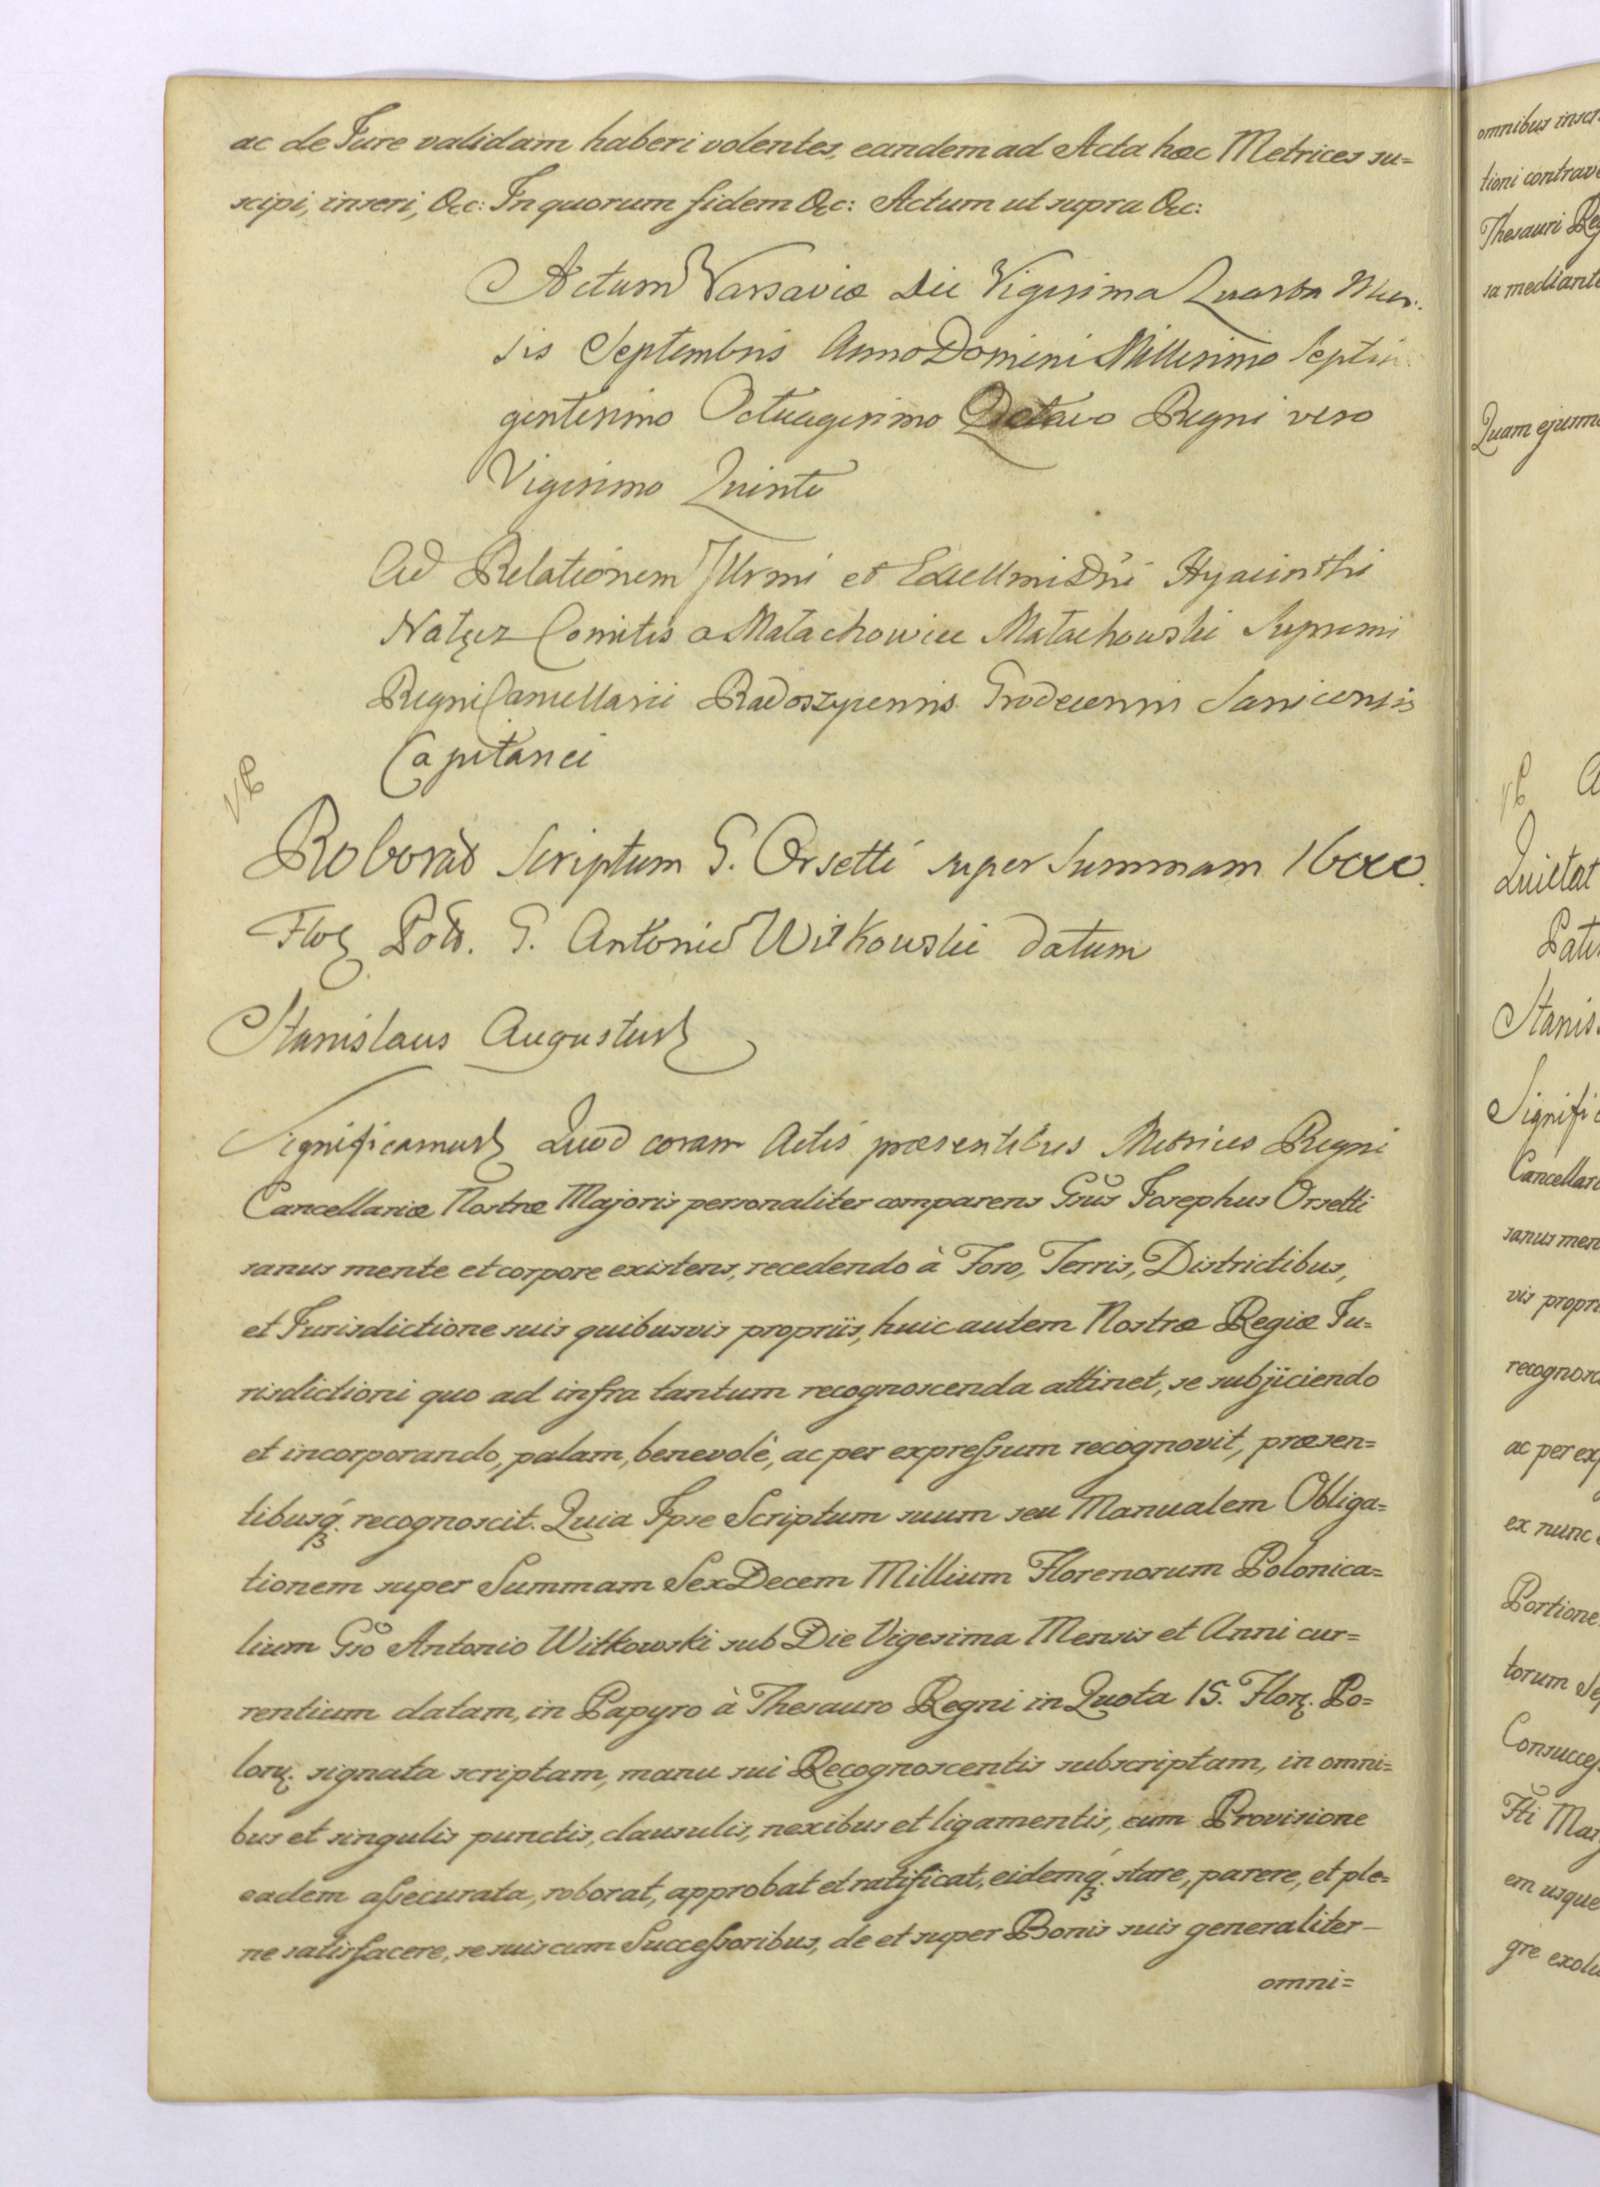 ac de Jure validam haberi volentes, eandem ad Acta hæc Metrices su=
scipi, inseri, &c: In quorum fidem &c: Actum ut supra &c:
Actum Varsaviæ Die Vigesima Quarta Men=
sis Septembris Anno Domini Millesimo Septin
gentesimo Octuagesimo Octavo Regni vero
Vigesimo Quinto
Ad Relationem Illrmi et Excellmi Dñi Hyacinthi
Nałęcz Comitis a Małachowice Małachowski Supremi
Regni Cancellarii Radoszycensis Grodecensis
Capitanei
Roborat Scriptum G. Orsetti super Summam 16000.
Flor. Pol. G. Antonio Witkowski datum
Stanislaus Augustus
Significamus Quod coram Actis præsentibus Metrices Regni
Cancellariæ Nostræ Majoris personaliter comparens Gsus Josephus Orsetti
sanus mente et corpore existens, recedendo à Foro, Terris, Districtibus,
et Jurisdictione suis quibusvis propriis, huic autem Nostræ Regiæ Ju=
risdictioni quo ad infra tantum recognoscenda attinet, se subjiciendo
et incorporando, palam, benevolè, ac per expressum recognovit, præsen=
tibusq. recognoscit. Quia Ipse Scriptum suum seu Manualem Obliga=
tionem super Summam SexDecem Millium Florenorum Polonica=
lium Gso Antonio Witkowski sub Die Vigesima Mensis et Anni cur=
rentium datam, in Papyro à Thesauro Regni in Quota 15. Flor. Po=
lon. signata scriptam, manu sui Recognoscentis subscriptam, in omni=
bus et singulis punctis, clausulis, nexibus et ligamentis, cum Provisione
eadem assecurata, roborat, approbat et ratificat, eidemq. stare, parere, et ple=
ne satisfacere, se suis cum Successoribus, de et super Bonis suis generaliter—
omni=
omnibus
Thesauri
Quam
Quietat
Significa
recognosc
ac per
ex nunc
Portione
torum
em usque
gre